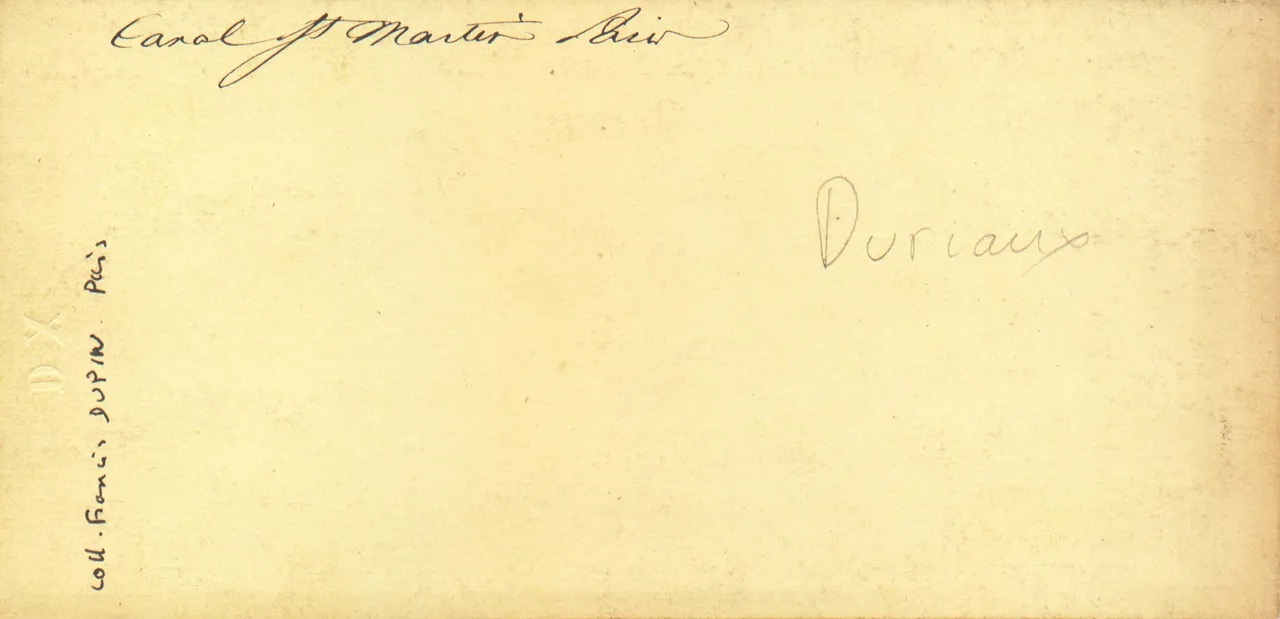 Canal St Martin Paris
Duriaux
Coll. Francis DUPIN. Paris
DX